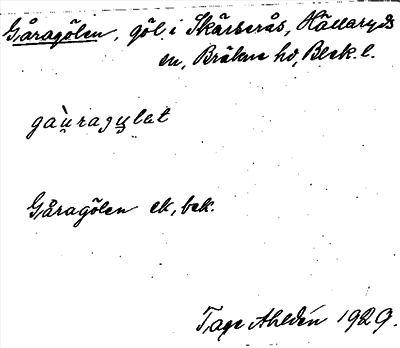 Gåragölen, göl i Skärserås, Hällaryds
en, Bräkne hd, Blek. l.
gaùragylet
Gåragölen ek, bek.
Tage Ahldén 1929.